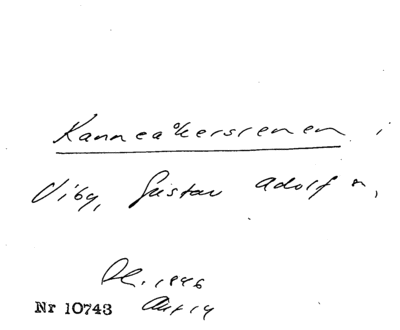 Kanneåkersrenen i
Viby, Gustav Adolf n,
1946
Nr 10743